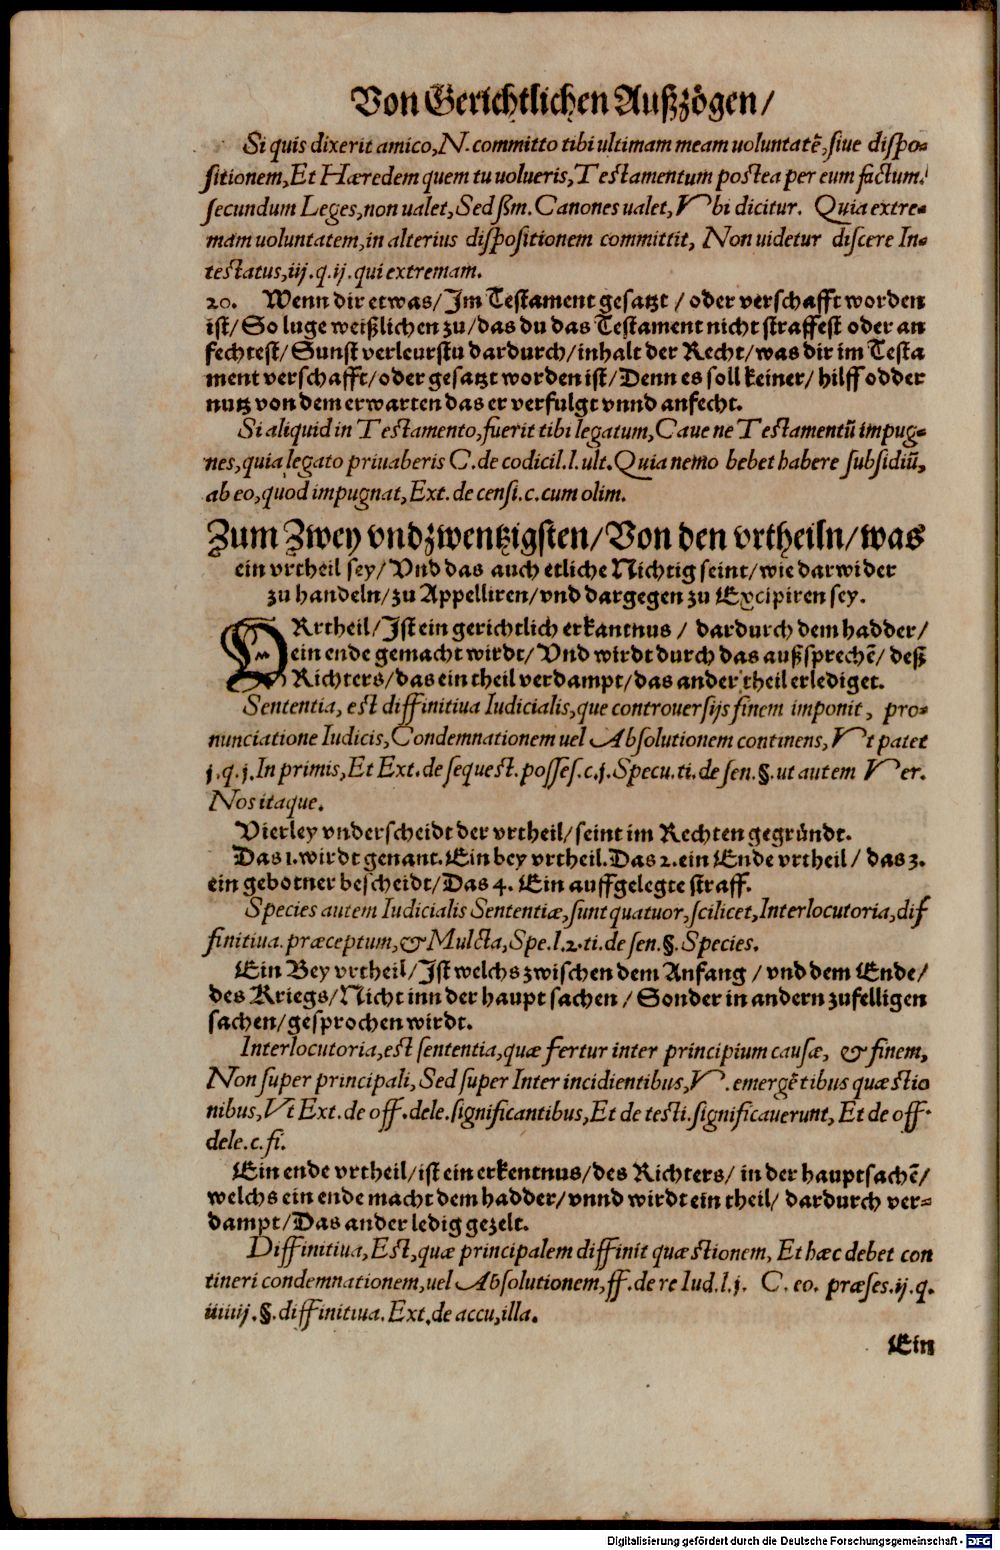 Von Gerichtlichen Außzögen/
Si quis dixerit amico, N. committo tibi ultimam meam uoluntatẽ, ſiue diſpo-
ſitionem, Et Hæredem quem tu uolueris, Teſtamentum poſtea per eum factum.
ſecundum Leges, non ualet, Sed ßm. Canones ualet, Vbi dicitur. Quia extre-
mam uoluntatem, in alterius diſpoſitionem committit, Non uidetur diſcere In-
teſtatus, iij. q. ij. qui extremam.
20. Wenn dir etwas/ Jm Teſtament geſatzt / oder verſchafft worden
iſt/ So luge weißlichen zu/ das du das Teſtament nicht ſtraffeſt oder an
fechteſt/ Sunſt verleurſtu dardurch/ inhalt der Recht/ was dir im Teſta
ment verſchafft/ oder geſatzt worden iſt/ Denn es ſoll keiner/ hilff odder
nutz von dem erwarten das er verfulgt vnnd anfecht.
Si aliquid in Teſtamento, fuerit tibi legatum, Caue ne Teſtamentũ impug-
nes, quia legato priuaberis C. de codicil. l. ult. Quia nemo bebet habere ſubſidiũ,
ab eo, quod impugnat, Ext. de cenſi. c. cum olim.
Zum Zwey vnd zwentzigſten/ Von den vrtheiln/ was
ein vrtheil ſey/ Vnd das auch etliche Nichtig ſeint/ wie darwider
zu handeln/ zu Appelliren/ vnd dargegen zu Excipiren ſey.
VRtheil/ Jſt ein gerichtlich erkantnus / dardurch dem hadder/
ein ende gemacht wirdt/ Vnd wirdt durch das außſprechẽ/ deß
Richters/ das ein theil verdampt/ das ander theil erlediget.
Sententia, eſt diffinitiua Iudicialis, que controuerſijs finem imponit, pro-
nunciatione Iudicis, Condemnationem uel Abſolutionem continens, Vt patet
j. q. j. In primis, Et Ext. de ſequeſt. poſſeſ. c. j. Specu. ti. de ſen. §. ut autem Ver.
Nos itaque.
Vierley vnderſcheidt der vrtheil/ ſeint im Rechten gegründt.
Das 1. wirdt genant. Ein bey vrtheil. Das 2. ein Ende vrtheil/ das 3.
ein gebotner beſcheidt/ Das 4. Ein auffgelegte ſtraff.
Species autem Iudicialis Sententiæ, ſunt quatuor, ſcilicet, Interlocutoria, dif
finitiua. præceptum, & Mulcta, Spe. l. 2. ti. de ſen. §. Species.
Ein Bey vrtheil/ Jſt welchs zwiſchen dem Anfang / vnd dem Ende/
des Kriegs/ Nicht inn der haupt ſachen / Sonder in andern zufelligen
ſachen/ geſprochen wirdt.
Interlocutoria, eſt ſententia, quæ fertur inter principium cauſæ, & finem,
Non ſuper principali, Sed ſuper Inter incidientibus, V. emergẽtibus quæſtio
nibus, Vt Ext. de off. dele. ſignificantibus, Et de teſti. ſignificauerunt, Et de off.
dele. c. fi.
Ein ende vrtheil/ iſt ein erkentnus/ des Richters/ in der hauptſachẽ/
welchs ein ende macht dem hadder/ vnnd wirdt ein theil/ dardurch ver-
dampt/ Das ander ledig gezelt.
Diffinitiua, Eſt, quæ principalem diffinit quæſtionem, Et hæc debet con
tineri condemnationem, uel Abſolutionem, ff. de re Iud. l. j. C. eo. præſes. ij. q.
§. diffinitiua. Ext. de accu, illa.
Ein
Digitalisierung gefördert durch die Deutsche Forschungsgemeinschaft - DFG